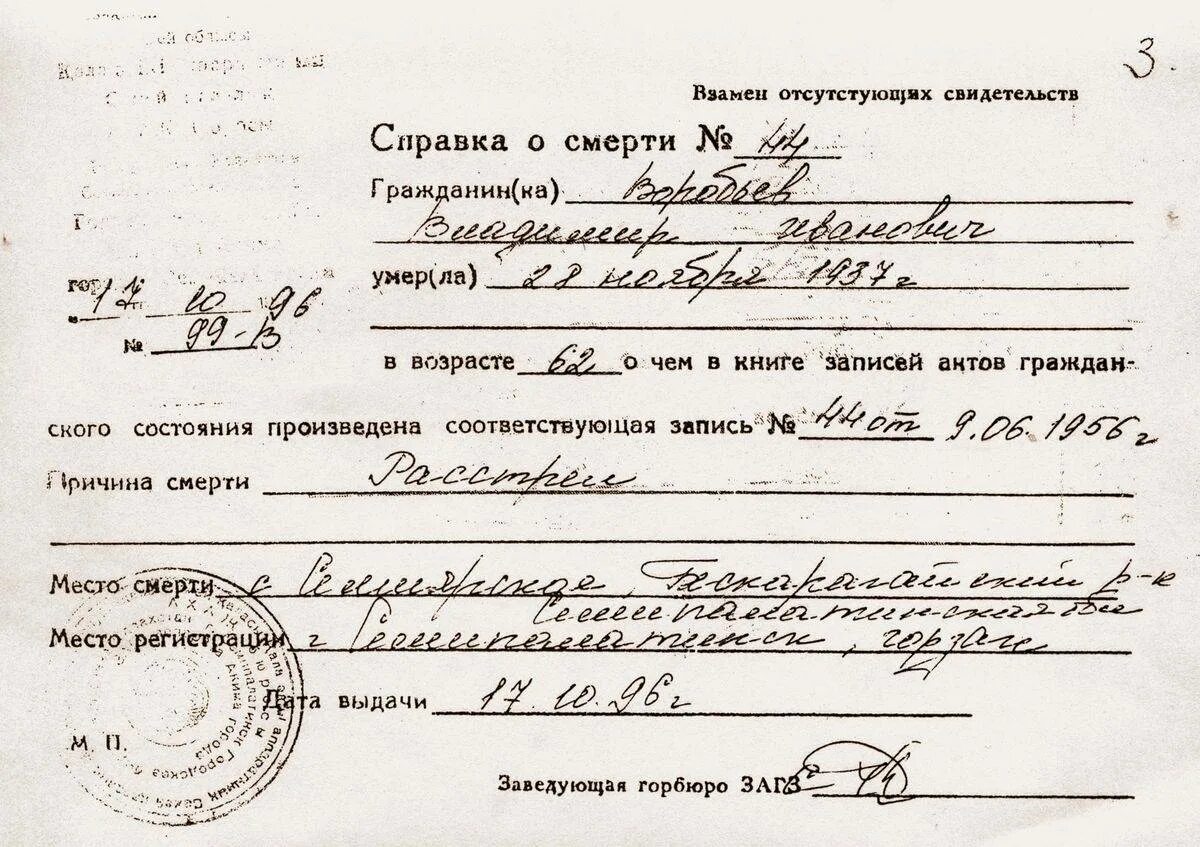 3.
Взамен отсутстующих свидетельств
Справка о смерти № 44
Гражданин(ка) Воробьев
Владимир Иванович
умер(ла) 28 ноября 1937 г
гор.
"17" 10 96
№ 99-В
в возрасте 62 о чем в книге записей актов граждан-
ского состояния произведена соответствующая запись № 44 от 9.06.1956 г
Причина смерти Расстрел
Место смерти с Семиярское, Бескарагайский р-н
Семипалатинская
Место регистрации г Семипалатинск, горзагс
Дата выдачи 17.10.96 г
М. П.
Заведующая горбюро ЗАГЗ